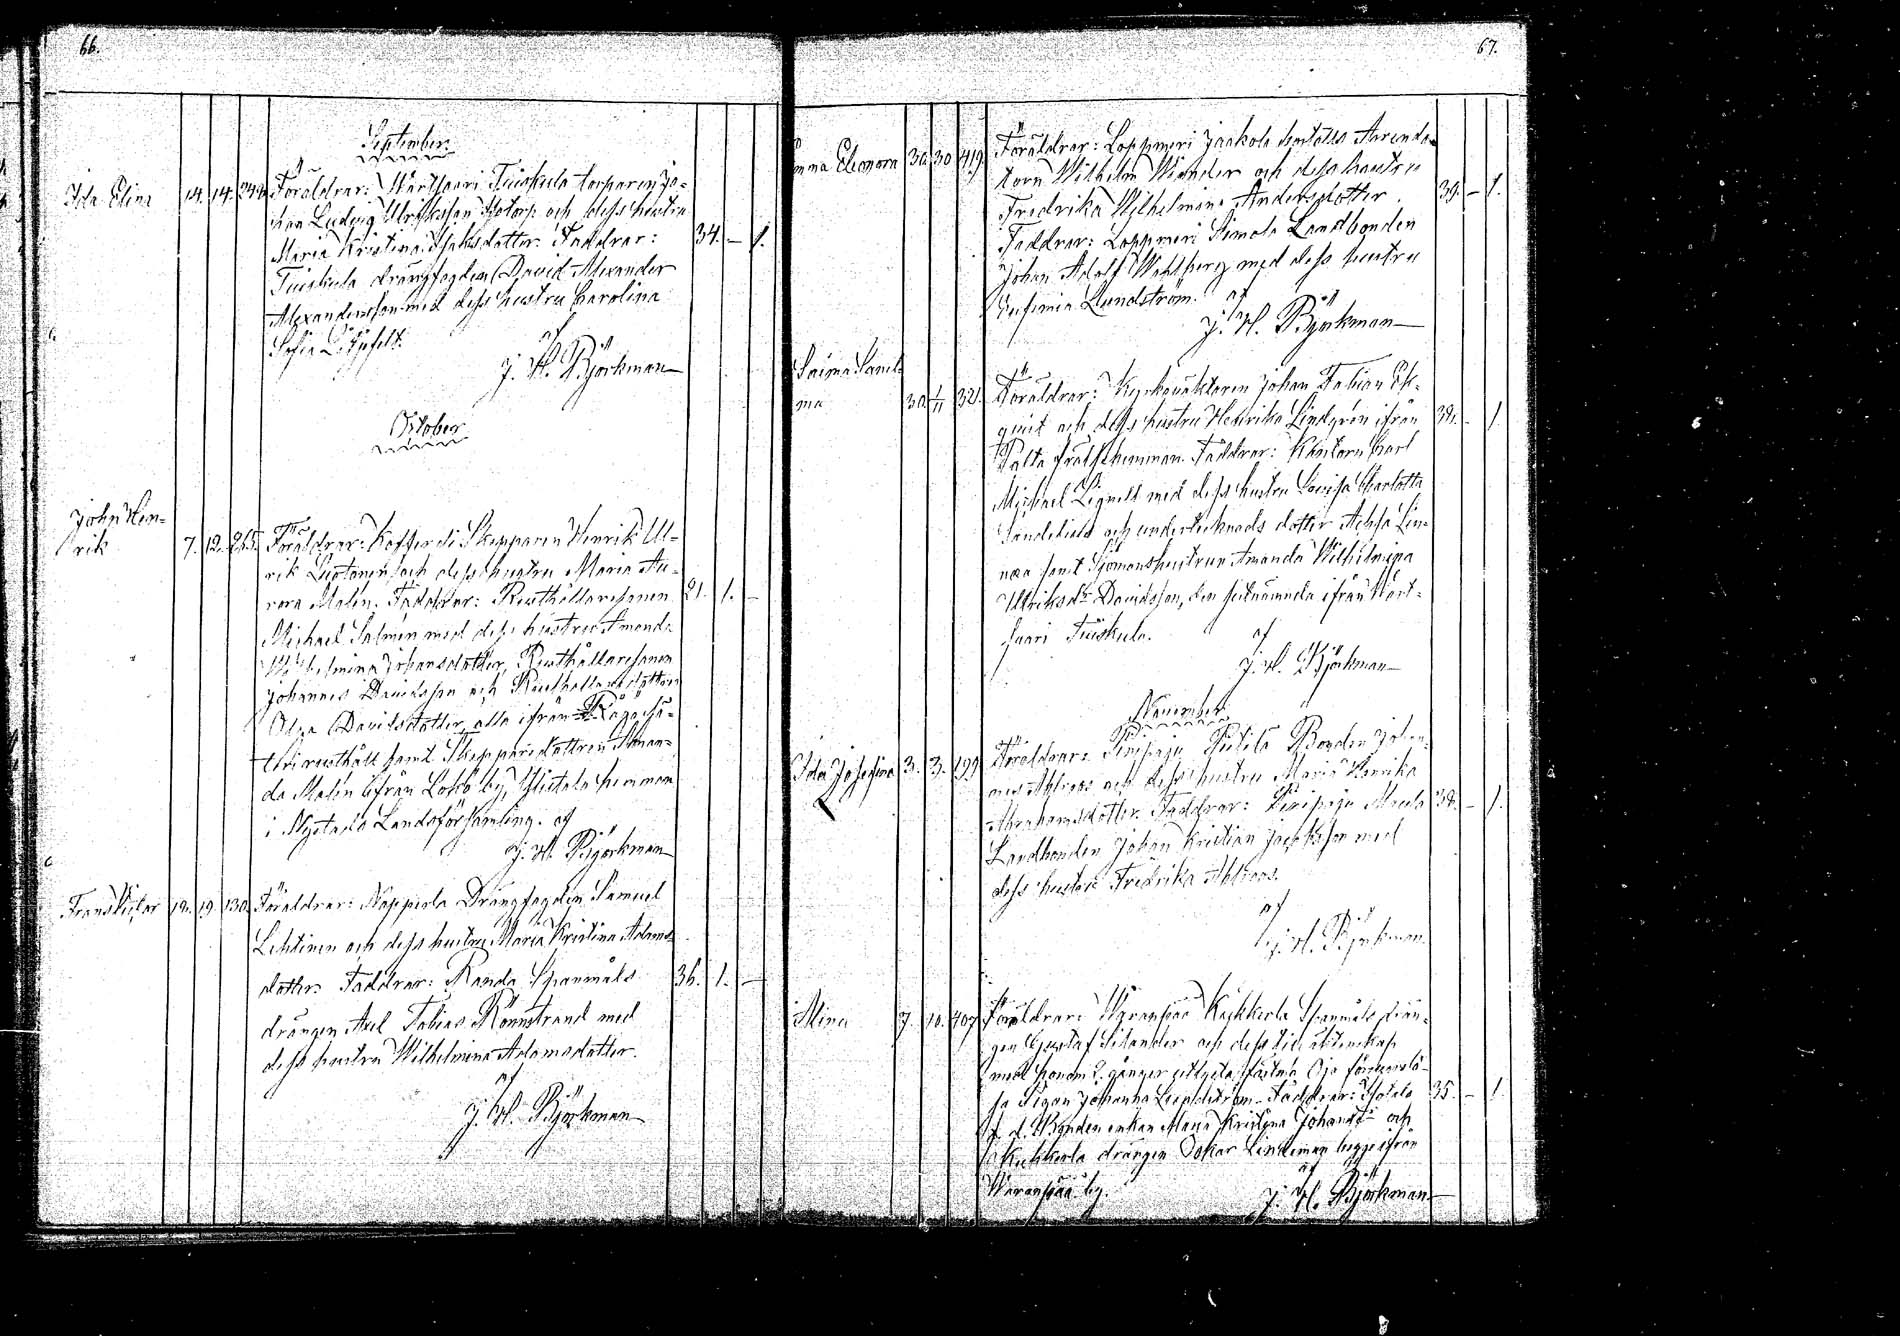 66.
September.
Ida Elina 14. 14. 248. Föräldrar: Wartsaari Tuiskula torparen Jo-
han Ludvig Ulriksson och dess hustru
Maria Kristina Isaksdotter. Faddrar: 34. — 1.
Tuiskula drängfogden David Alexander
Alexandersson med dess hustru Carolina
Sofia
af
J. H. Björkman
October
John Hen-
rik 7. 12. 265. Föräldrar: Kofferdi Skepparen Henrik Ul-
rik och dess hustru Maria Au-
rora Malén. Faddrar: Rusthållaresonen 21. 1. —
Michael Salmén med dess hustru Amanda
Wilhelmina Johansdotter, Rusthållaresonen
Johannes Davidsson och Rusthållaredottren
Olga Davidsdotter, alla ifrån
rusthåll samt Skepparedottren Aman-
da Malén ifrån Lokö by, hemman
i Nystads Landsförsamling. af
J. H. Björkman
Frans Victor 18. 19. 130. Föräldrar: Nopperla Drängfogden Samuel
Lehtinen och dess hustru Maria Kristina Adams-
dotter. Faddrar: Randa Spanmåls 36. 1. —
drängen Axel Tobias Rönnstrand med
dess hustru Wilhelmina Adamsdotter.
af
J. H. Björkman
67.
Emma Eleonora 30. 30 419. Föräldrar: Loppmeri Jaakola Arrenda-
torn Wilhelm Wiander och dess hustru
Fredrika Wilhelmina Andersdotter. 39. — 1.
Faddrar: Loppmeri Simola Landbonden
Johan Adolf Wahlberg med dess hustru
Eufemia Lundström. af
J. H. Björkman
Saima Sanel-
ma 30. 1/11 321. Föräldrar: Kyrkovaktaren Johan Fabian Ek-
qvist och dess hustru Henrika Lindgrén ifrån 38. — 1.
Palta frälsehemman. Faddrar: Kantorn Carl
Michael Lignell med dess hustru Lovisa Charlotta
Sandelius och undertecknads dotter Lin-
nea samt Sjömanshustrun Amanda Wilhelmina
Ulriksdr Davidsson, den sistnämnda ifrån Wart-
saari Tuiskula. af
J. H. Björkman
November
Ida Josefina 3. 3. 199 Föräldrar: Siuspaju Bonden Johan-
nes Ahlroos och dess hustru Maria Henrika
Abrahamsdotter. Faddrar: 38. — 1.
Landbonden Johan Kristian Jacobsson med
dess hustru Fredrika Ahlroos.
af
J. H. Björkman
Mina 7. 10. 407 Föräldrar: Waranpää Kukkerla Spanmåls drän-
gen Gustaf Silander och dess till äktenskap
med honom 2. gånger utlysta fästmö
Pigan Johanna Lindström. Faddrar: 35. — 1.
f. d. Bonden enkan Maria Kristina Johansdr och
Kukkerla drängen Oskar Lindeman begge ifrån
Waranpää by. af
J. H. Björkman